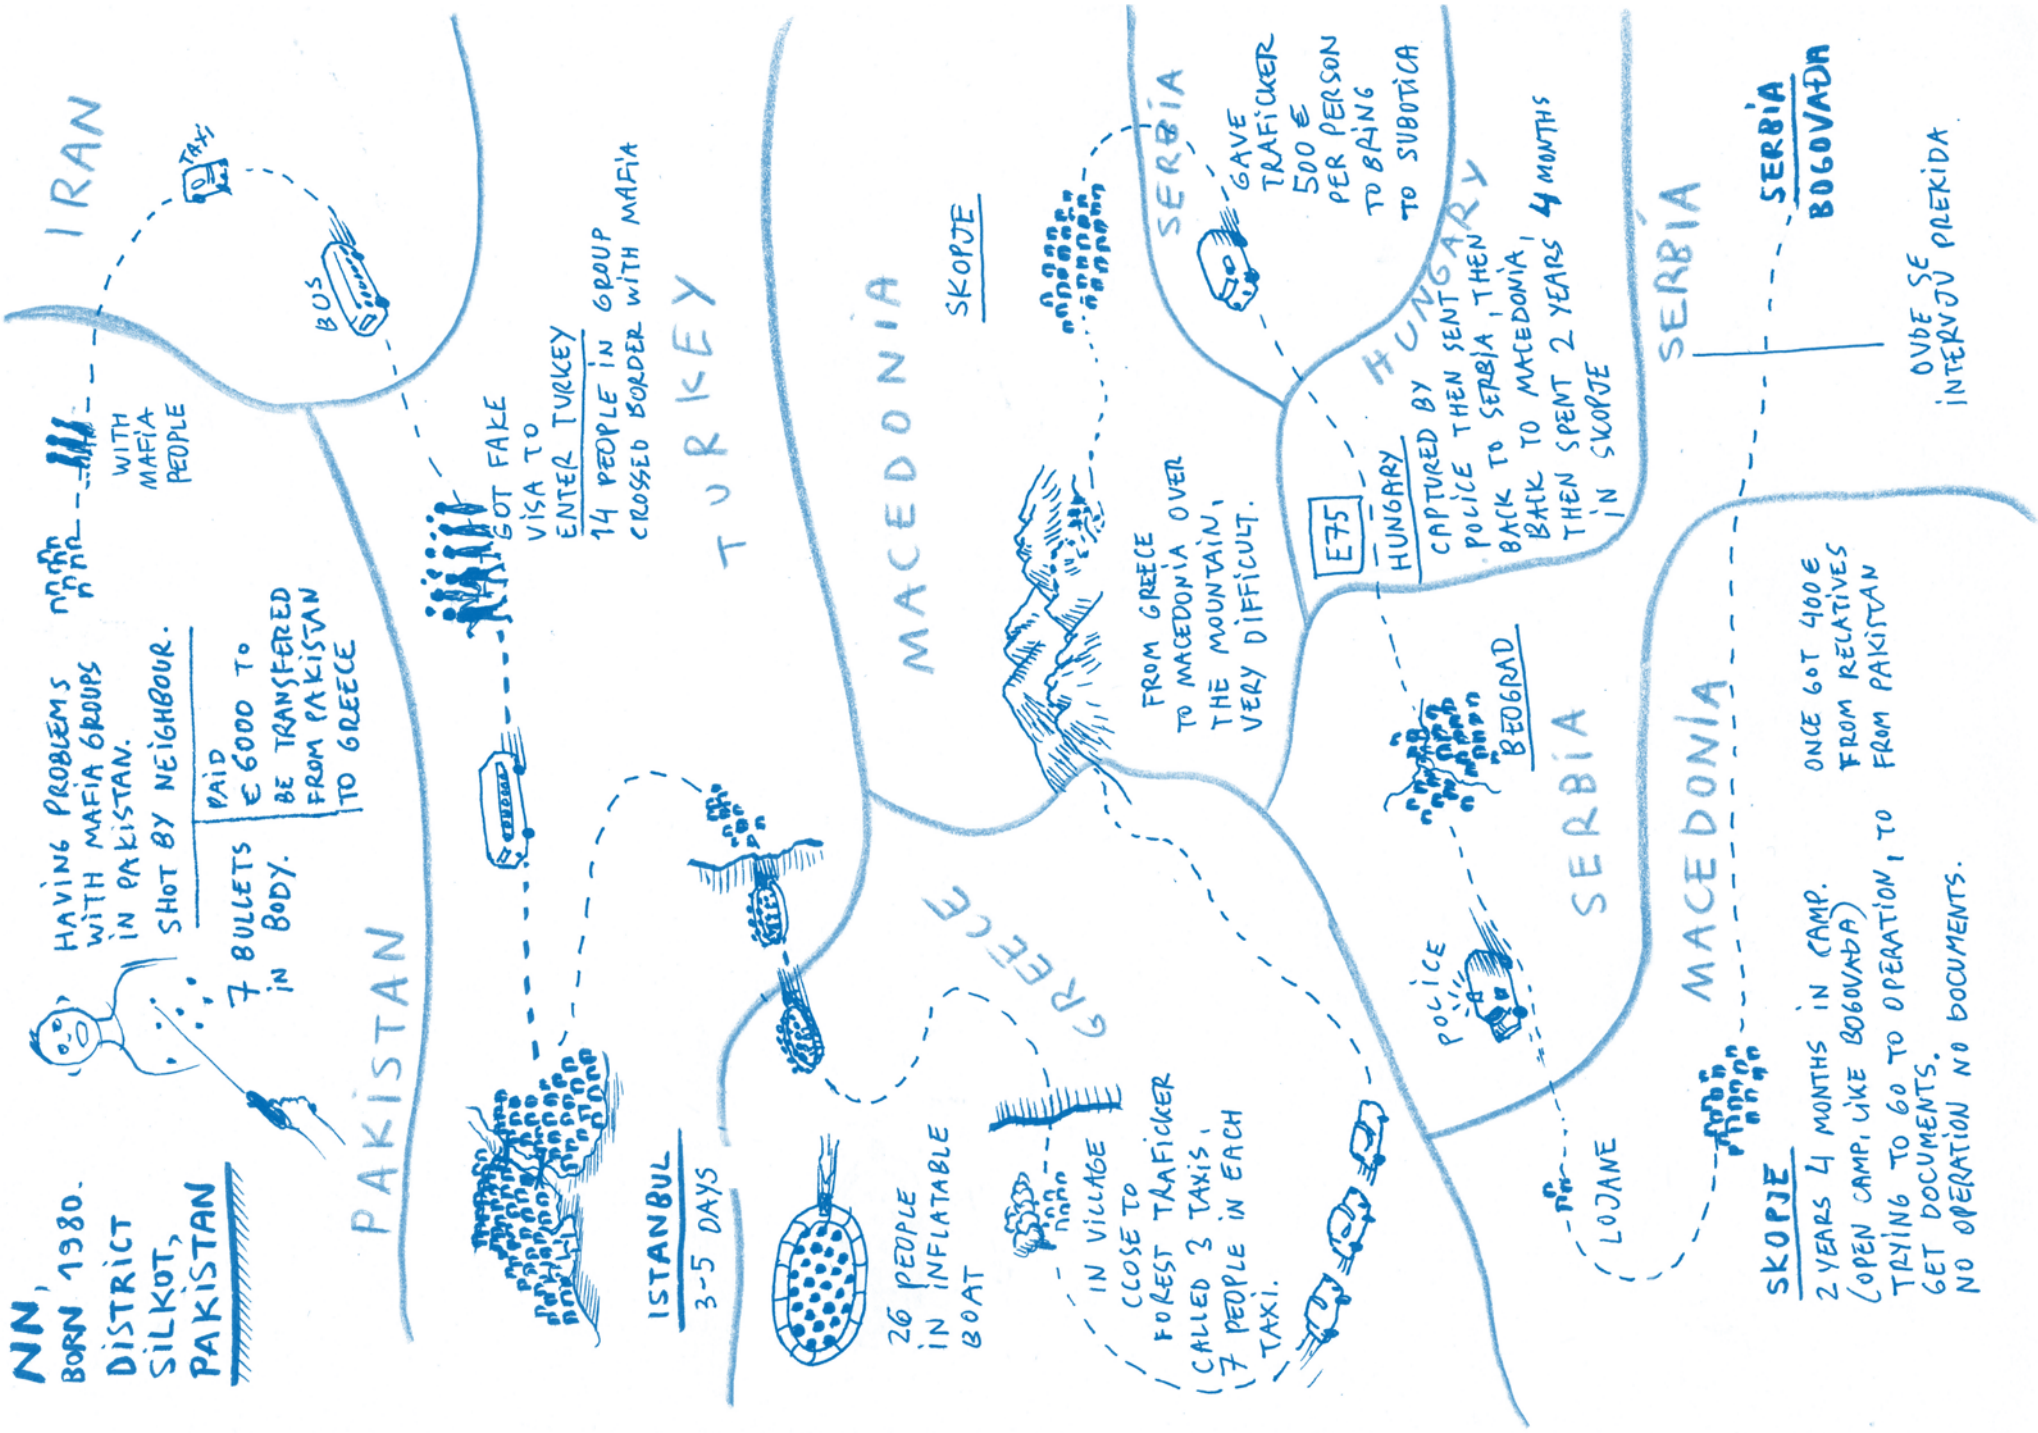 NN,
BORN 1980.
DISTRICT
SILKOT,
PAKISTAN
HAVING PROBLEMS
WITH MAFIA GROUPS
IN PAKISTAN.
SHOT BY NEIGHBOUR.
7 BULLETS
IN BODY.
PAID
€ 6000 TO
BE TRANSFERED
FROM PAKISTAN
TO GREECE
WITH
MAFIA
PEOPLE
PAKISTAN
IRAN
TAXI
BUS
GOT FAKE
VISA TO
ENTER TURKEY
14 PEOPLE IN GROUP
CROSSED BORDER WITH MAFIA
TURKEY
ISTANBUL
3-5 DAYS
26 PEOPLE
IN INFLATABLE
BOAT
GREECE
IN VILLAGE
CLOSE TO
FOREST TRAFICKER
CALLED 3 TAXIS,
7 PEOPLE IN EACH
TAXI.
MACEDONIA
FROM GREECE
TO MACEDONIA OVER
THE MOUNTAIN,
VERY DIFFICULT.
SKOPJE
SERBIA
GAVE
TRAFICKER
500 €
PER PERSON
TO BRING
TO SUBOTICA
HUNGARY
E75
HUNGARY
CAPTURED BY
POLICE THEN SENT
BACK TO SERBIA, THEN
BACK TO MACEDONIA,
THEN SPENT 2 YEARS 4 MONTHS
IN SKOPJE
BEOGRAD
SERBIA
POLICE
LOJANE
MACEDONIA
SKOPJE
2 YEARS 4 MONTHS IN CAMP.
(OPEN CAMP, LIKE BOGOVAĐA)
TRYING TO GO TO OPERATION, TO
GET DOCUMENTS.
NO OPERATION NO DOCUMENTS.
ONCE GOT 400 €
FROM RELATIVES
FROM PAKISTAN
SERBIA
SERBIA
BOGOVAĐA
OVDE SE
INTERVJU PREKIDA.